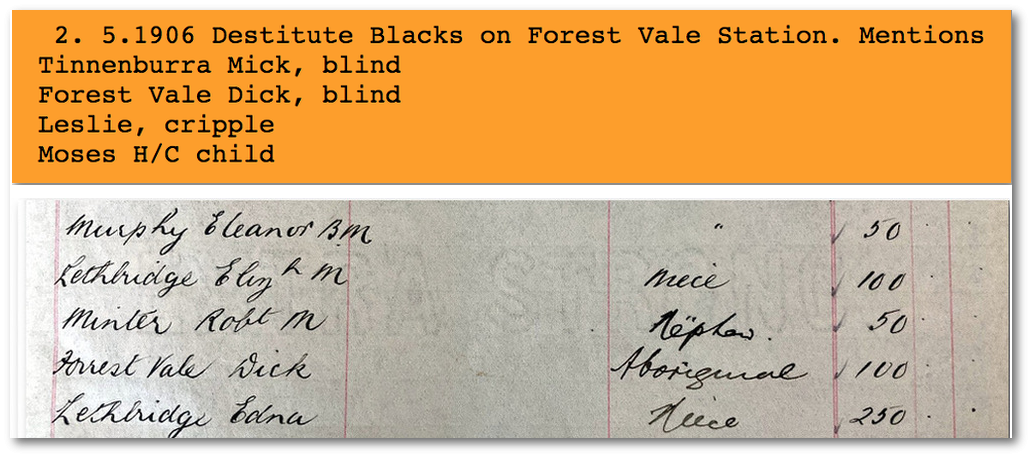 2. 5.1906 Destitute Blacks on Forest Vale Station. Mentions
Tinnenburra Mick, blind
Forest Vale Dick, blind
Leslie, cripple
Moses H/C child
Murphy Eleanor B.M " ✓ 50
Lethbridge Elizh M Niece ✓ 100
Minter Robt M Nephew. ✓ 50
Forrest Vale Dick Aboriginal ✓ 100
Lethbridge Edna Niece ✓ 250